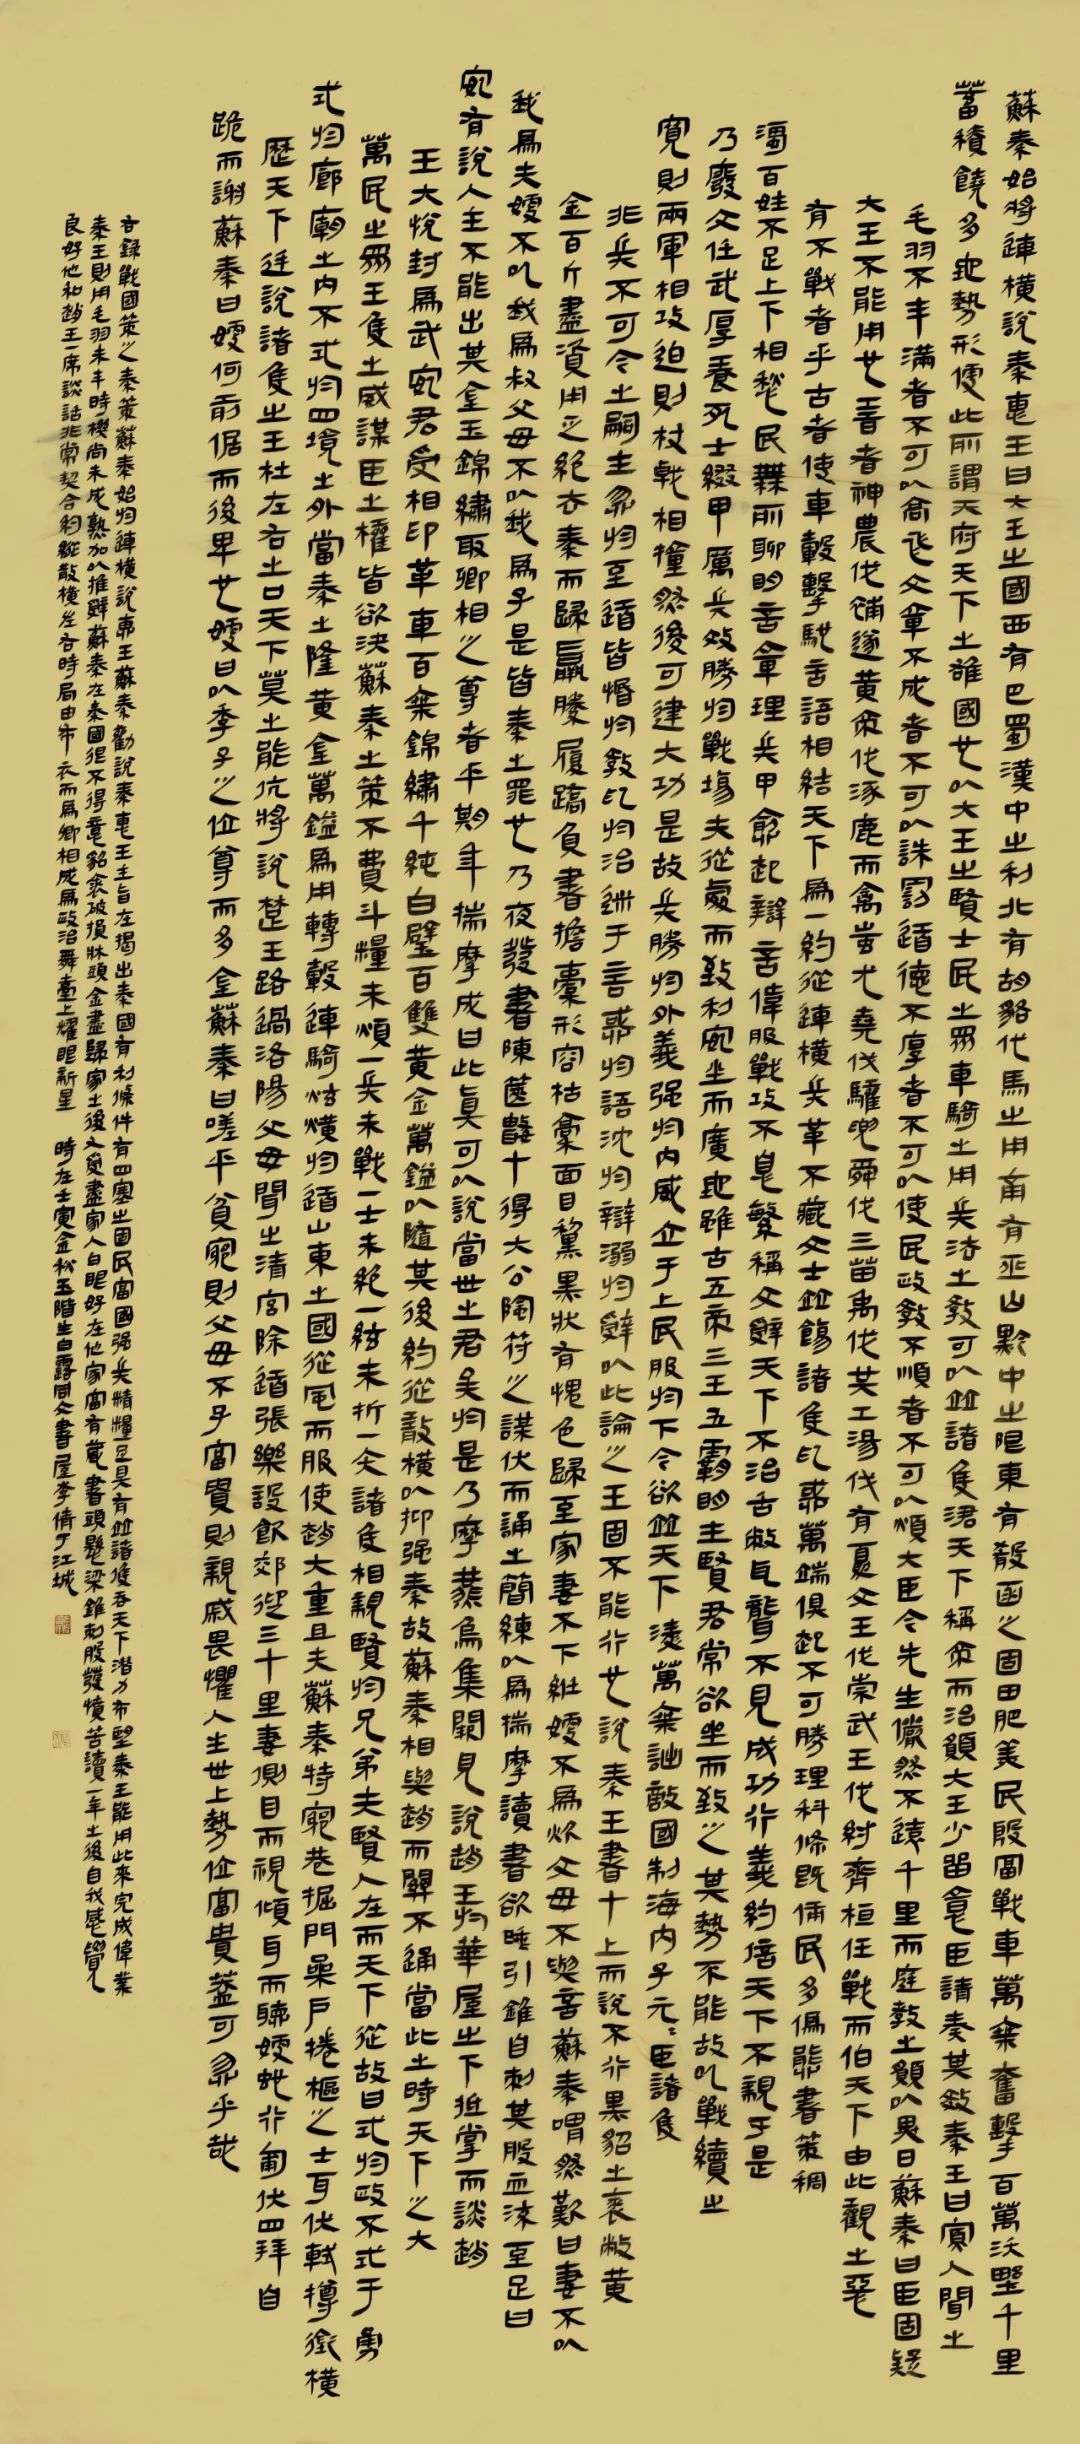 蘇秦始將連橫說秦惠王曰大王之國西有巴蜀漢中之利北有胡貉代馬之用南有巫山黔中之限東有殽函之固田肥美民殷富戰車萬乘奮擊百萬沃野千里
蓄積饒多地勢形便此所謂天府天下之雄國也以大王之賢士民之眾車騎之用兵法之教可以並諸侯吞天下稱帝而治願大王少留意臣請奏其效秦王曰寡人聞之
毛羽不丰滿者不可以高飛文章不成者不可以誅罰道德不厚者不可以使民政教不順者不可以煩大臣今先生儼然不遠千里而庭教之願以異日蘇秦曰臣固疑
大王不能用也昔者神農伐補遂黃帝伐涿鹿而禽蚩尤堯伐驩兜舜伐三苗禹伐共工湯伐有夏文王伐崇武王伐紂齊桓任戰而伯天下由此觀之惡
有不戰者乎古者使車轂擊馳言語相結天下為一約從連橫兵革不藏文士並餝諸侯亂惑萬端俱起不可勝理科條既備民多偽態書策稠
濁百姓不足上下相愁民無所聊明言章理兵甲愈起辯言偉服戰攻不息繁稱文辭天下不治舌敝耳聾不見成功行義約信天下不親于是
乃廢文任武厚養死士綴甲厲兵效勝於戰場夫徒處而致利安坐而廣地雖古五帝三王五霸明主賢君常欲坐而致之其勢不能故以戰續之
寬則兩軍相攻迫則杖戟相橦然後可建大功是故兵勝於外義强於內威立于上民服於下今欲並天下淩萬乘詘敵國制海內子元元臣諸侯
非兵不可今之嗣主忽於至道皆惛於教亂於治迷于言惑於語沈於辯溺於辭以此論之王固不能行也說秦王書十上而說不行黑貂之裘敝黃
金百斤盡資用乏絕去秦而歸羸縢履蹻負書擔橐形容枯槁面目黧黑狀有愧色歸至家妻不下紝嫂不為炊父母不與言蘇秦喟然歎曰妻不以
我為夫嫂不以我為叔父母不以我為子是皆秦之罪也乃夜發書陳篋數十得大公陰符之謀伏而誦之簡練以為揣摩讀書欲睡引錐自刺其股血流至足曰
安有說人主不能出其金玉錦繡取卿相之尊者乎期年揣摩成曰此真可以說當世之君矣於是乃摩燕烏集闕見說趙王於華屋之下抵掌而談趙
王大悅封為武安君受相印革車百乘錦繡千純白璧百雙黃金萬鎰以隨其後約從散橫以抑强秦故蘇秦相與趙而關不通當此之時天下之大
萬民之眾王侯之威謀臣之權皆欲決蘇秦之策不費斗糧未煩一兵未戰一士未絕一絃未折一矢諸侯相親賢於兄弟夫賢人在而天下從故曰式於政不式于勇
式於廊廟之內不式於四境之外當秦之隆黃金萬鎰為用轉轂連騎炫熿於道山東之國從風而服使趙大重且夫蘇秦特窮巷掘門桑戶捲樞之士耳伏軾撙銜橫
歷天下廷說諸侯之王杜左右之口天下莫之能伉將說楚王路過洛陽父母聞之清宮除道張樂設飲郊迎三十里妻側目而視傾耳而聽嫂蛇行匍伏四拜自
跪而謝蘇秦曰嫂何前倨而後卑也嫂曰以季子之位尊而多金蘇秦曰嗟乎貧窮則父母不子富貴則親戚畏懼人生世上勢位富貴蓋可忽乎哉
右錄戰國策之秦策蘇秦始將連橫說惠王蘇秦勸說秦惠王主旨在揭出秦國有利條件有四塞之固民富國强兵精糧足具有並諸侯吞天下潛力希望秦王能用此來完成偉業
秦王則用毛羽未丰時機尚未成熟加以推辭蘇秦在秦國很不得意貂裘破損牀頭金盡歸家之後又受盡家人白眼好在他家富有藏書頭懸梁錐刺股發憤苦讀一年之後自我感覺
良好他和趙王一席談話非常契合約縱散橫左右時局由布衣而為卿相成為政治舞臺上耀眼新星 時在壬寅金秋玉階生白露同文書屋李倩于江城